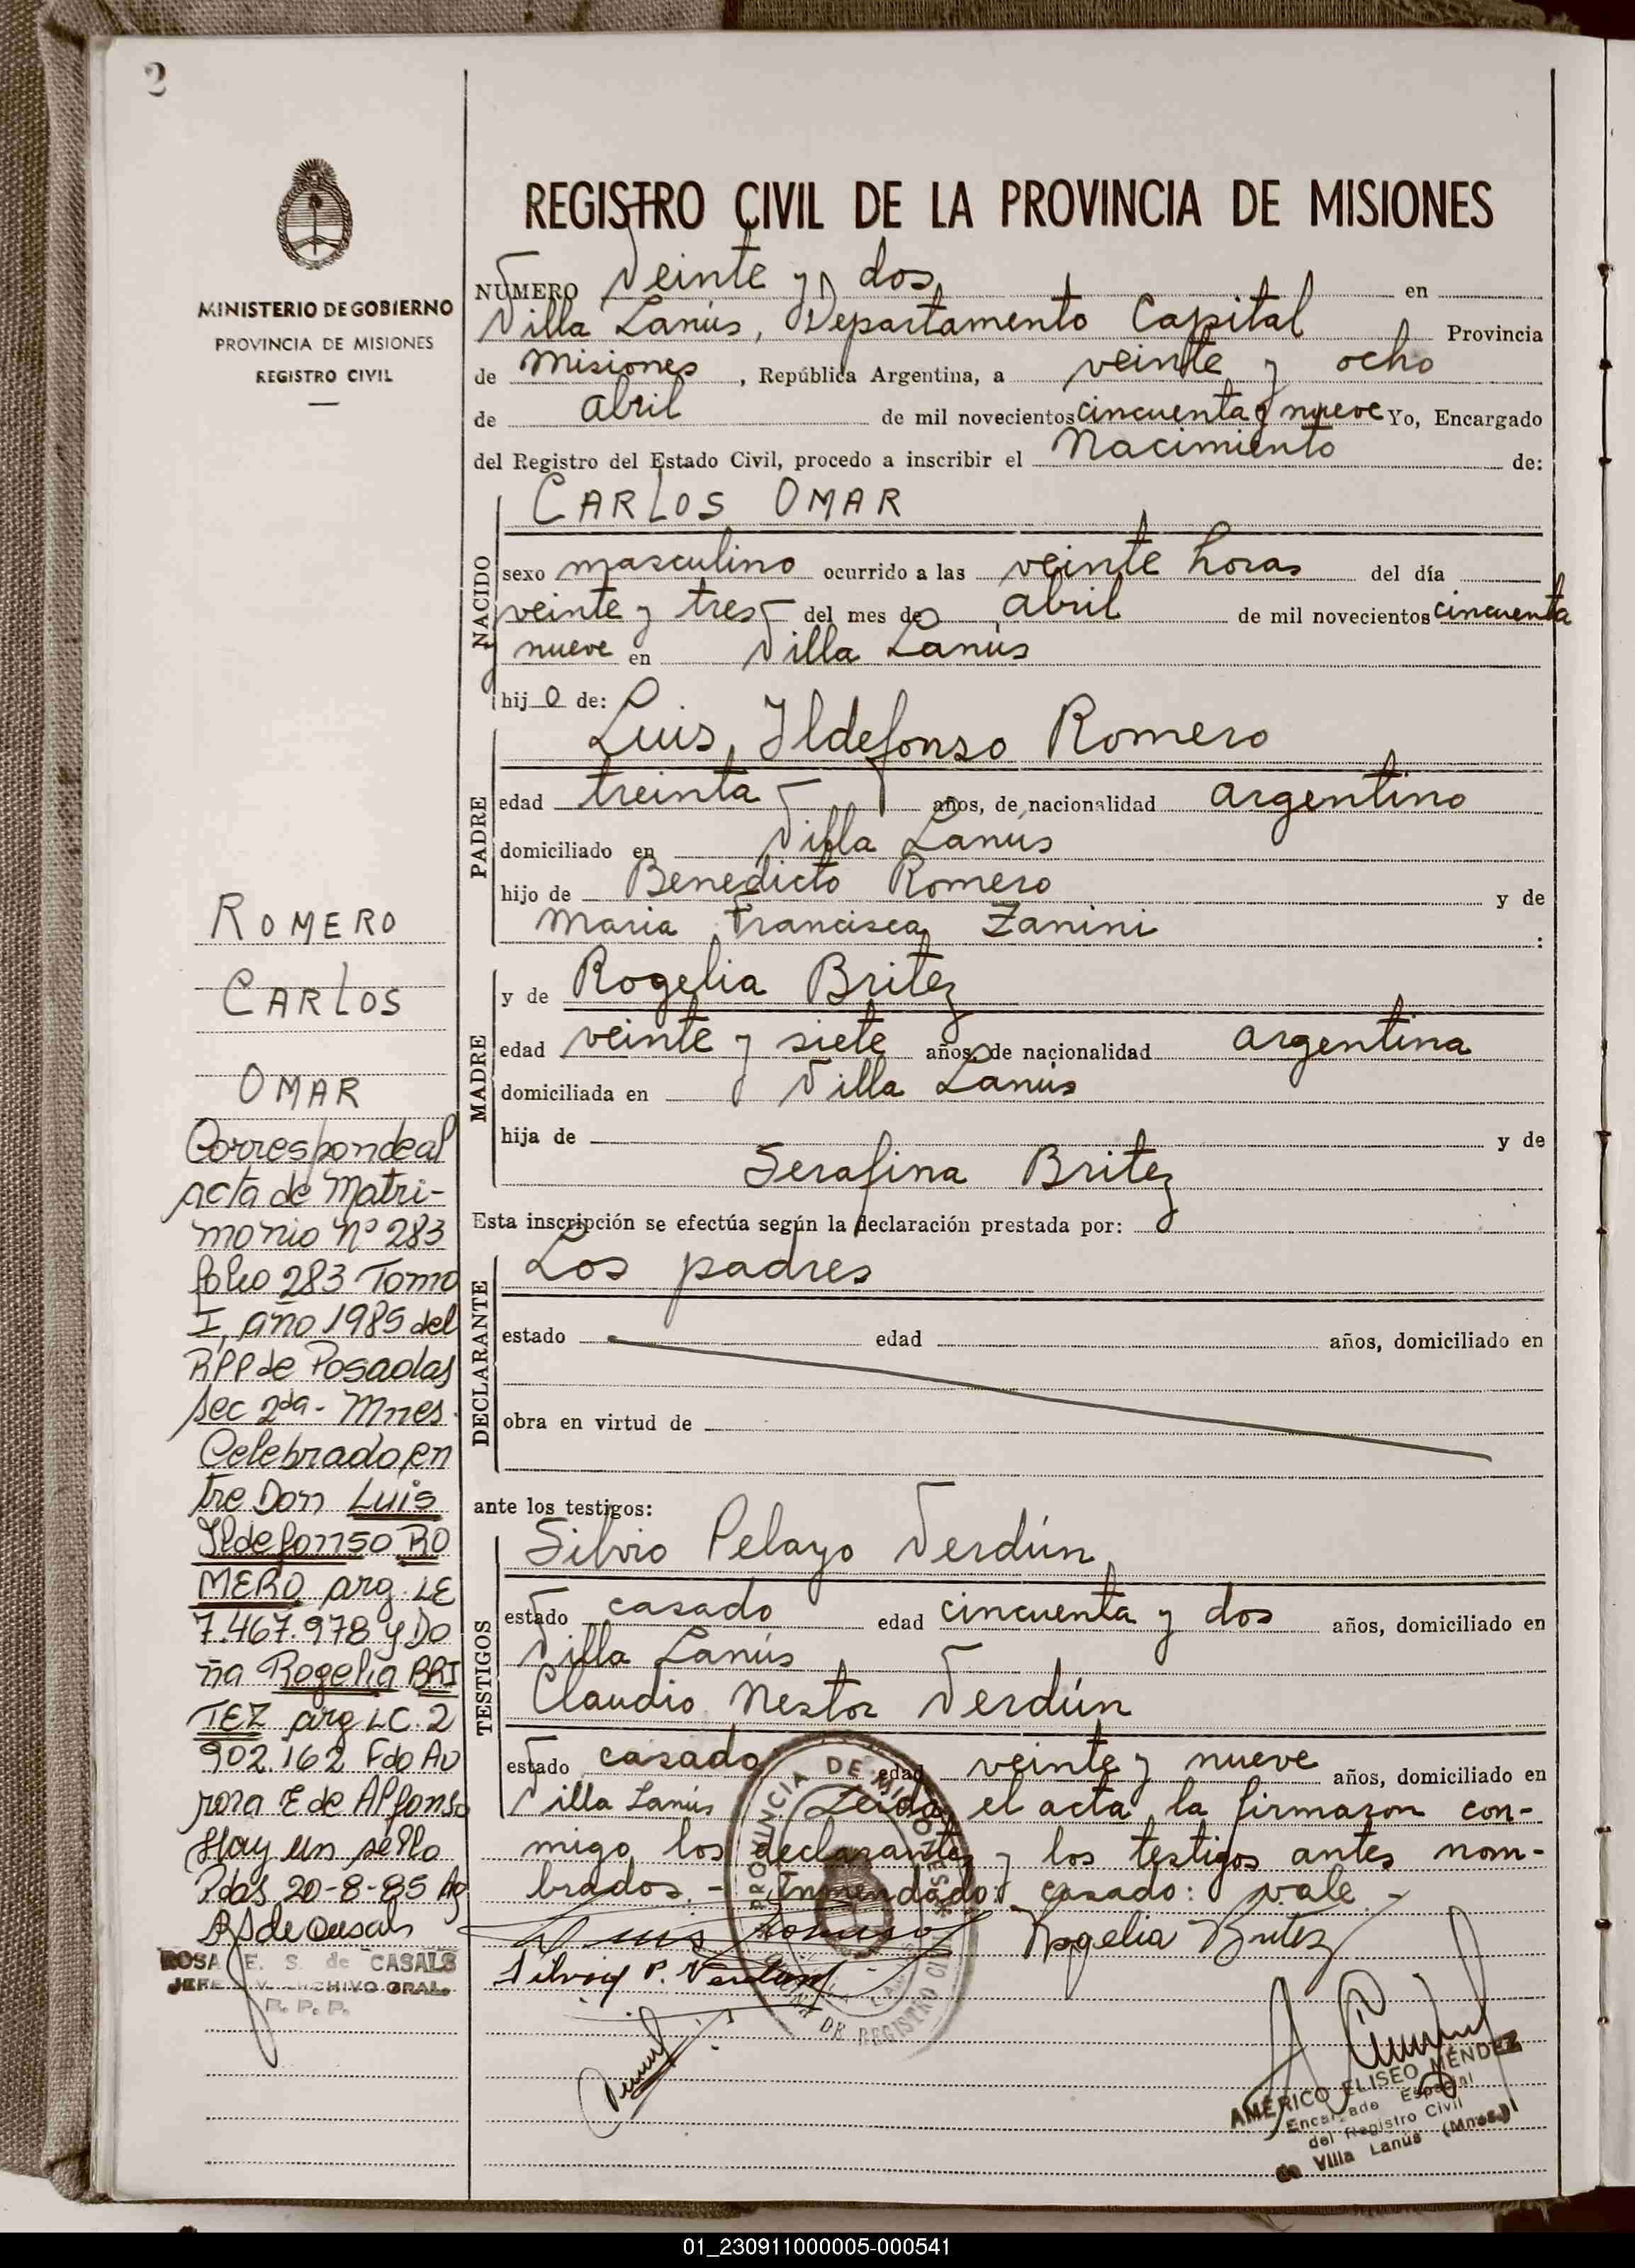 2
MINISTERIO DE GOBIERNO
PROVINCIA DE MISIONES
REGISTRO CIVIL
REGISTRO CIVIL DE LA PROVINCIA DE MISIONES
NÚMERO Veinte y dos en
Villa Lanús, Departamento Capital Provincia
de Misiones, República Argentina, a veinte y ocho
de abril de mil novecientos cincuenta y nueve Yo, Encargado
del Registro del Estado Civil, procedo a inscribir el Nacimiento de:
NACIDO
CARLOS OMAR
sexo masculino ocurrido a las veinte horas del día
veinte y tres del mes de abril de mil novecientos cincuenta
y nueve en Villa Lanús
hijo de:
PADRE
Luis Ildefonso Romero
edad treinta años, de nacionalidad argentino
domiciliado en Villa Lanús
hijo de Benedicto Romero y de
Maria Francisca Zanini :
MADRE
y de Rogelia Britez
edad veinte y siete años, de nacionalidad argentina
domiciliada en Villa Lanús
hija de y de
Serafina Britez
Esta inscripción se efectúa según la declaración prestada por:
DECLARANTE
Los padres
estado edad años, domiciliado en
obra en virtud de
ante los testigos:
TESTIGOS
Silvio Pelayo Verdún
estado casado edad cincuenta y dos años, domiciliado en
Villa Lanús
Claudio Nestor Verdún
estado casado edad veinte y nueve años, domiciliado en
Villa Lanús Leida el acta la firmaron con-
migo los declarantes y los testigos antes nom-
brados.- Enmendado: casado: vale-
Luis Romero Rogelia Britez
Silvio P. Verdun
PROVINCIA DE MISIONES
DE REGISTRO CIVIL
AMÉRICO ELISEO MÉNDEZ
Encargado Especial
del Registro Civil
de Villa Lanús (Mnes.)
ROMERO
CARLOS
OMAR
Corresponde al
acta de Matri-
monio Nº 283
folio 283 Tomo
I, año 1985 del
RPP de Posadas
Sec 2da- Mnes.
Celebrado en
tre Don Luis
Ildefonso RO
MERO arg. LE
7.467.978 y Do
ña Rogelia BRI
TEZ arg LC. 2
902.162 Fdo Au
rora E de Alfonso
Hay un sello
Pdas 20-8-85
RS de Casals
ROSA E. S. de CASALS
JEFE ARCHIVO GRAL.
R. P. P.
01_230911000005-000541